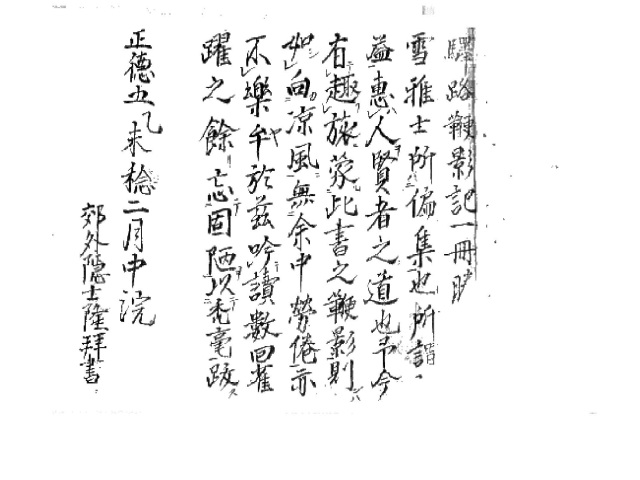 驛路鞭影記一冊晴
雪雅士所偏集也所謂
益惠人賢者之道也予今
有趣旅蒙此書之鞭影則
如向凉風無余中勞倦亦
不樂乎於茲吟讀數回雀
躍之餘忘固陋以禿毫跋
正德五乙未稔二月中浣
郊外隱士隆拜書